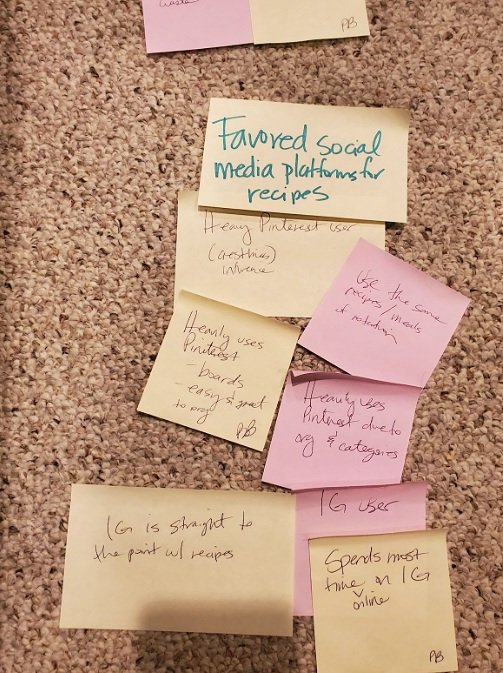 waste
PB
Favored social
media platforms for
recipes
Heavy Pinterest user
(aesthetics)
influence
Use the same
recipes/meals
rotation
Heavily uses
Pinterest
- boards
- easy & great
to org
PB
Heavily uses
Pinterest due to
org & categories
IG is straight to
the point w/ recipes
IG user
Spends most
time on IG
online
PB